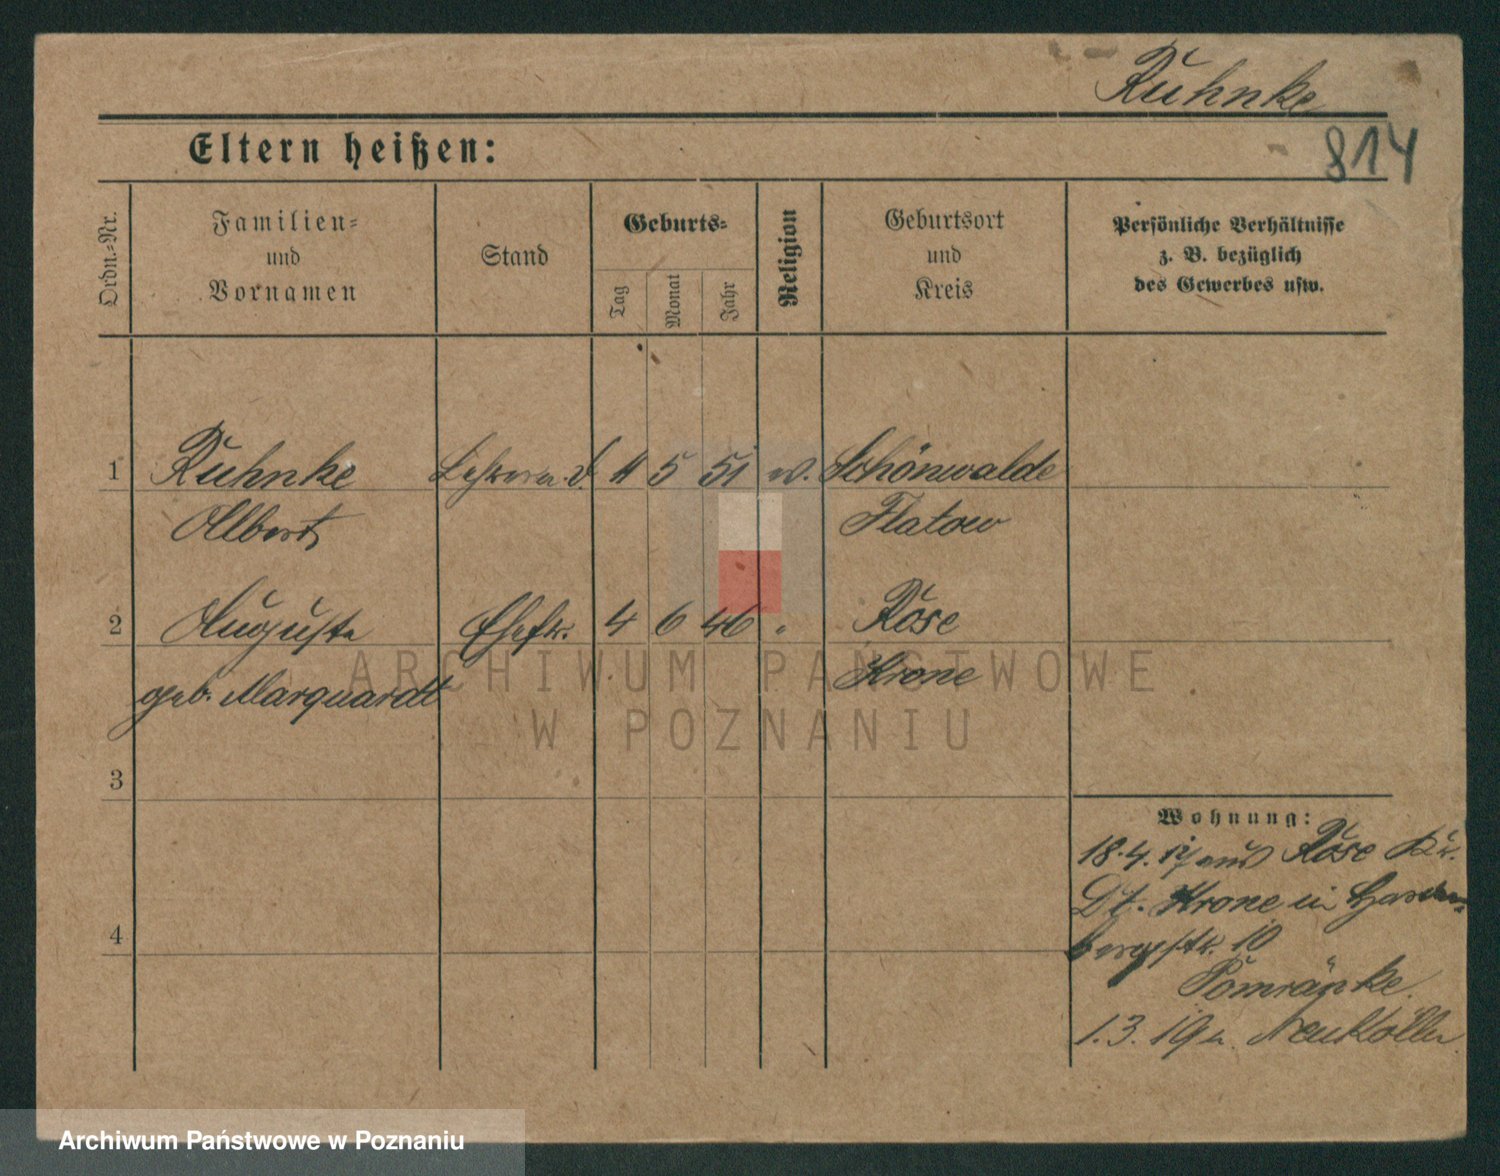 Ruhnke
814
Eltern heißen:
Ordn.-Nr.
Familien-
und
Vornamen
Stand
Geburts-
Tag
Monat
Jahr
Religion
Geburtsort
und
Kreis
Persönliche Verhältnisse
z. B. bezüglich
des Gewerbes usw.
1 Ruhnke 5 51 Schönwalde
Albert Flatow
2 Auguste Ehefr. 4 6 46 " Rose
geb. Marquardt Krone
ARCHIWUM PAŃSTWOWE
W POZNANIU
3
Wohnung:
18.4.17 aus Rose Kr.
Dt. Krone in
bergstr. 10
Pomränke
1.3.19 n. Neukölln
4
Archiwum Państwowe w Poznaniu